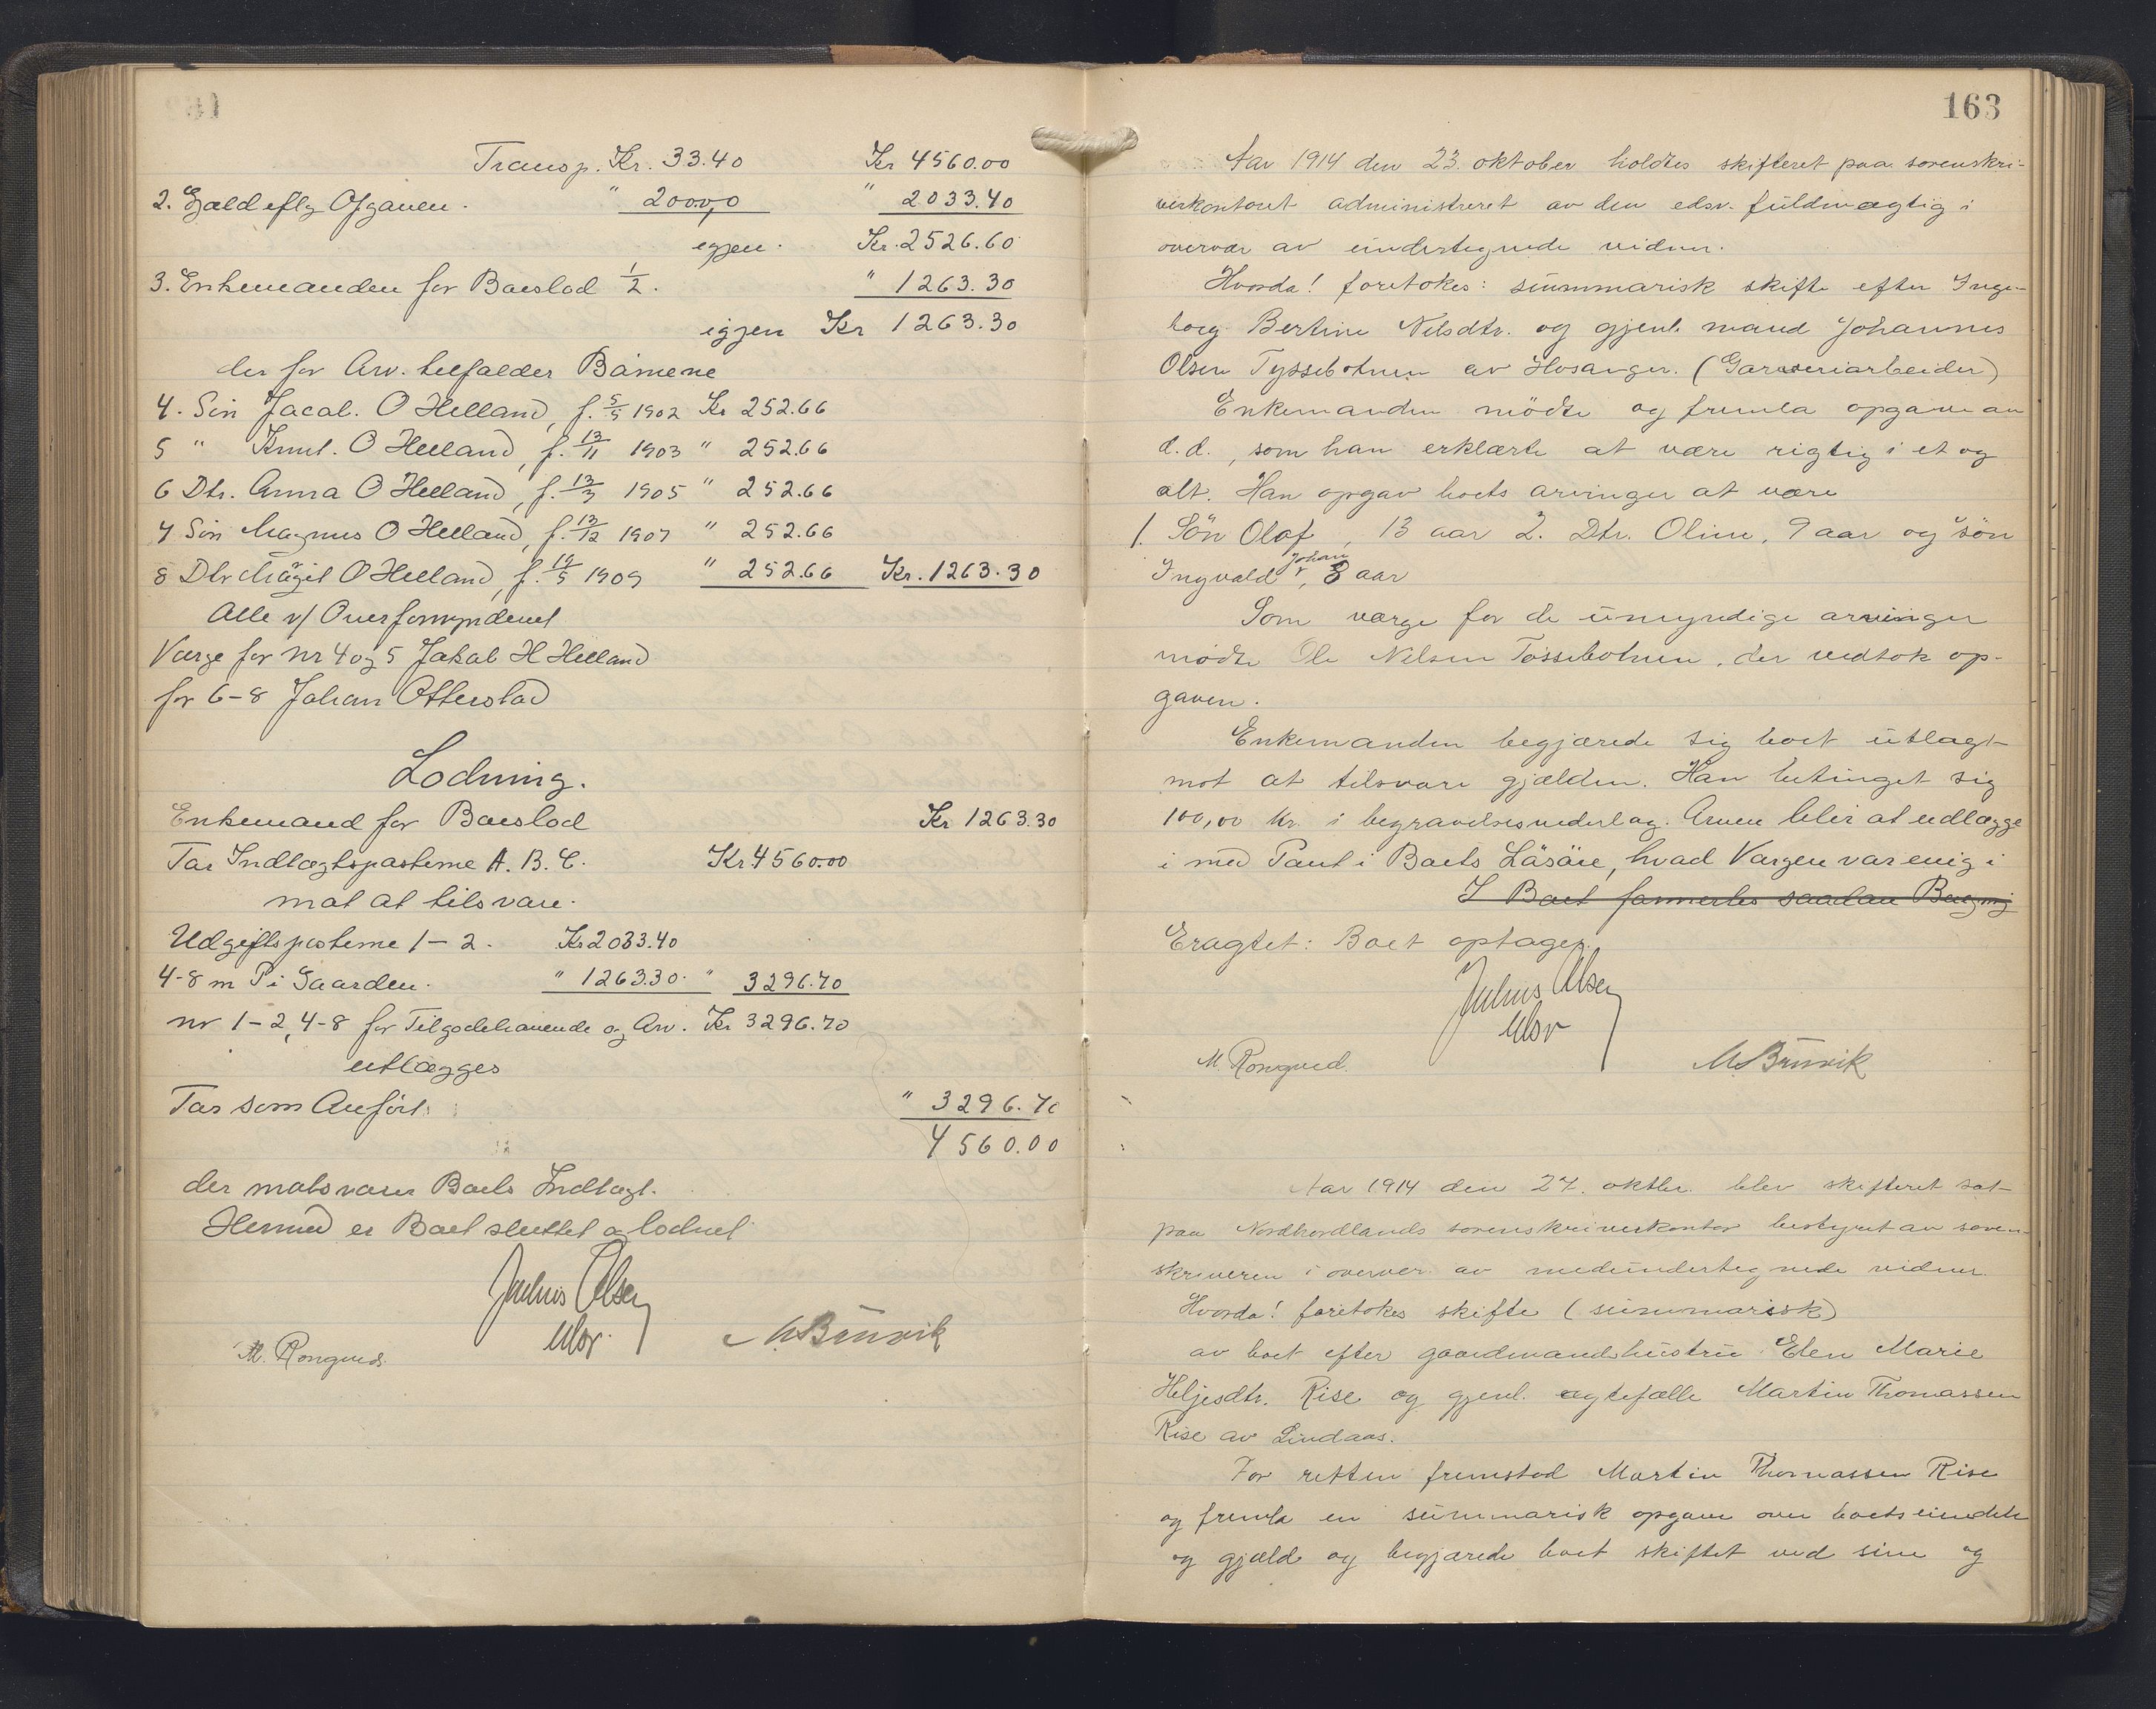 Transp. Kr. 33.40 Kr 4560.00
2. Gjæld eflg Opgaven. " 2000,0 " 2033.40
egjen. Kr. 2526.60
3. Enkemanden for Boeslod 1/2. " 1263.30
igjen Kr 1263.30
der for Arv. tilfalder Börnene
4. Sön Jacob. O Helland, f. 5/5 1902 Kr 252.66
5 " Knut. O Helland, f. 13/11 1903 " 252.66
6 Dtr. Anna O Helland, f. 13/3 1905 " 252.66
7 Sön Magnus O Helland, f. 13/12 1907 " 252.66
8 Dtr O Helland, f. 1909 " 252.66 Kr. 1263.30
Alle v/ Overformynderiet
Værge for nr 4 og 5 Jakob H Helland
for 6-8 Johan Otterstad
Lodning.
Enkemand for Boeslod Kr 1263.30
Tar Indtægtsposterne A. B. C. Kr 4560.00
mot at tilsvare.
Udgiftsposterne 1-2. Kr 2033.40
4-8 m P i Gaarden. " 1263.30. " 3296.70
nr 1-2, 4-8 for Tilgodehavende og Arv. Kr 3296.70
utlægges
Tar som Anfört. " 3296.70
4560.00
der motsvarer Boets Indtægt.
Hermed er Boet sluttet og lodnet
Julius Olsen
M. Rongved. M Brunvik
163
Aar 1914 den 23. oktober holdtes skifteret paa sorenskri-
verkontoret administreret av den edsv. fuldmægtig i
overvær av undertegnede vidner.
Hvorda! foretokes: summarisk skifte efter Inge-
borg Bertine Nilsdtr. og gjenl. mand Johannes
Olsen Tyssebotnen av Hosanger. (Garveriarbeider)
Enkemanden mødte og fremla opgave av
d.d., som han erklærte at være rigtig i et og
alt. Han opgav boets arvinger at være
1. Sön Olaf, 13 aar 2. Dtr. Oline, 9 aar og sön
Ingvald Johan, 8 aar
Som værge for de umyndige arvinger
mödte Ole Nilsen Tossebotnen, der vedtok op-
gaven.
Enkemanden begjærede sig boet utlagt
mot at tilsvare gjælden. Han betinget sig
100,00 kr. i begravelsesvederlag. Arven blir at udlægge
i med Pant i Boets Lösöre, hvad Værgen var enig i
I Boet saadan
Eragtet: Boet optages.
Julius Olsen
M. Rongved. M Brunvik
Aar 1914 den 27. oktbr. blev skifteret sat
paa Nordhordlands sorenskriverkontor bestyret av soren-
skriveren i overvær av medundertegnede vidner.
Hvorda! foretokes skifte (summarisk)
av boet efter gaardmandshustru Elen Marie
Heljesdtr. Rise og gjenl. ægtefælle Martin Thomassen
Rise av Lindaas.
For retten fremstod Martin Thomassen Rise
og fremla en summarisk opgave over boets eiendele
og gjæld og begjærede boet skiftet ved sine og